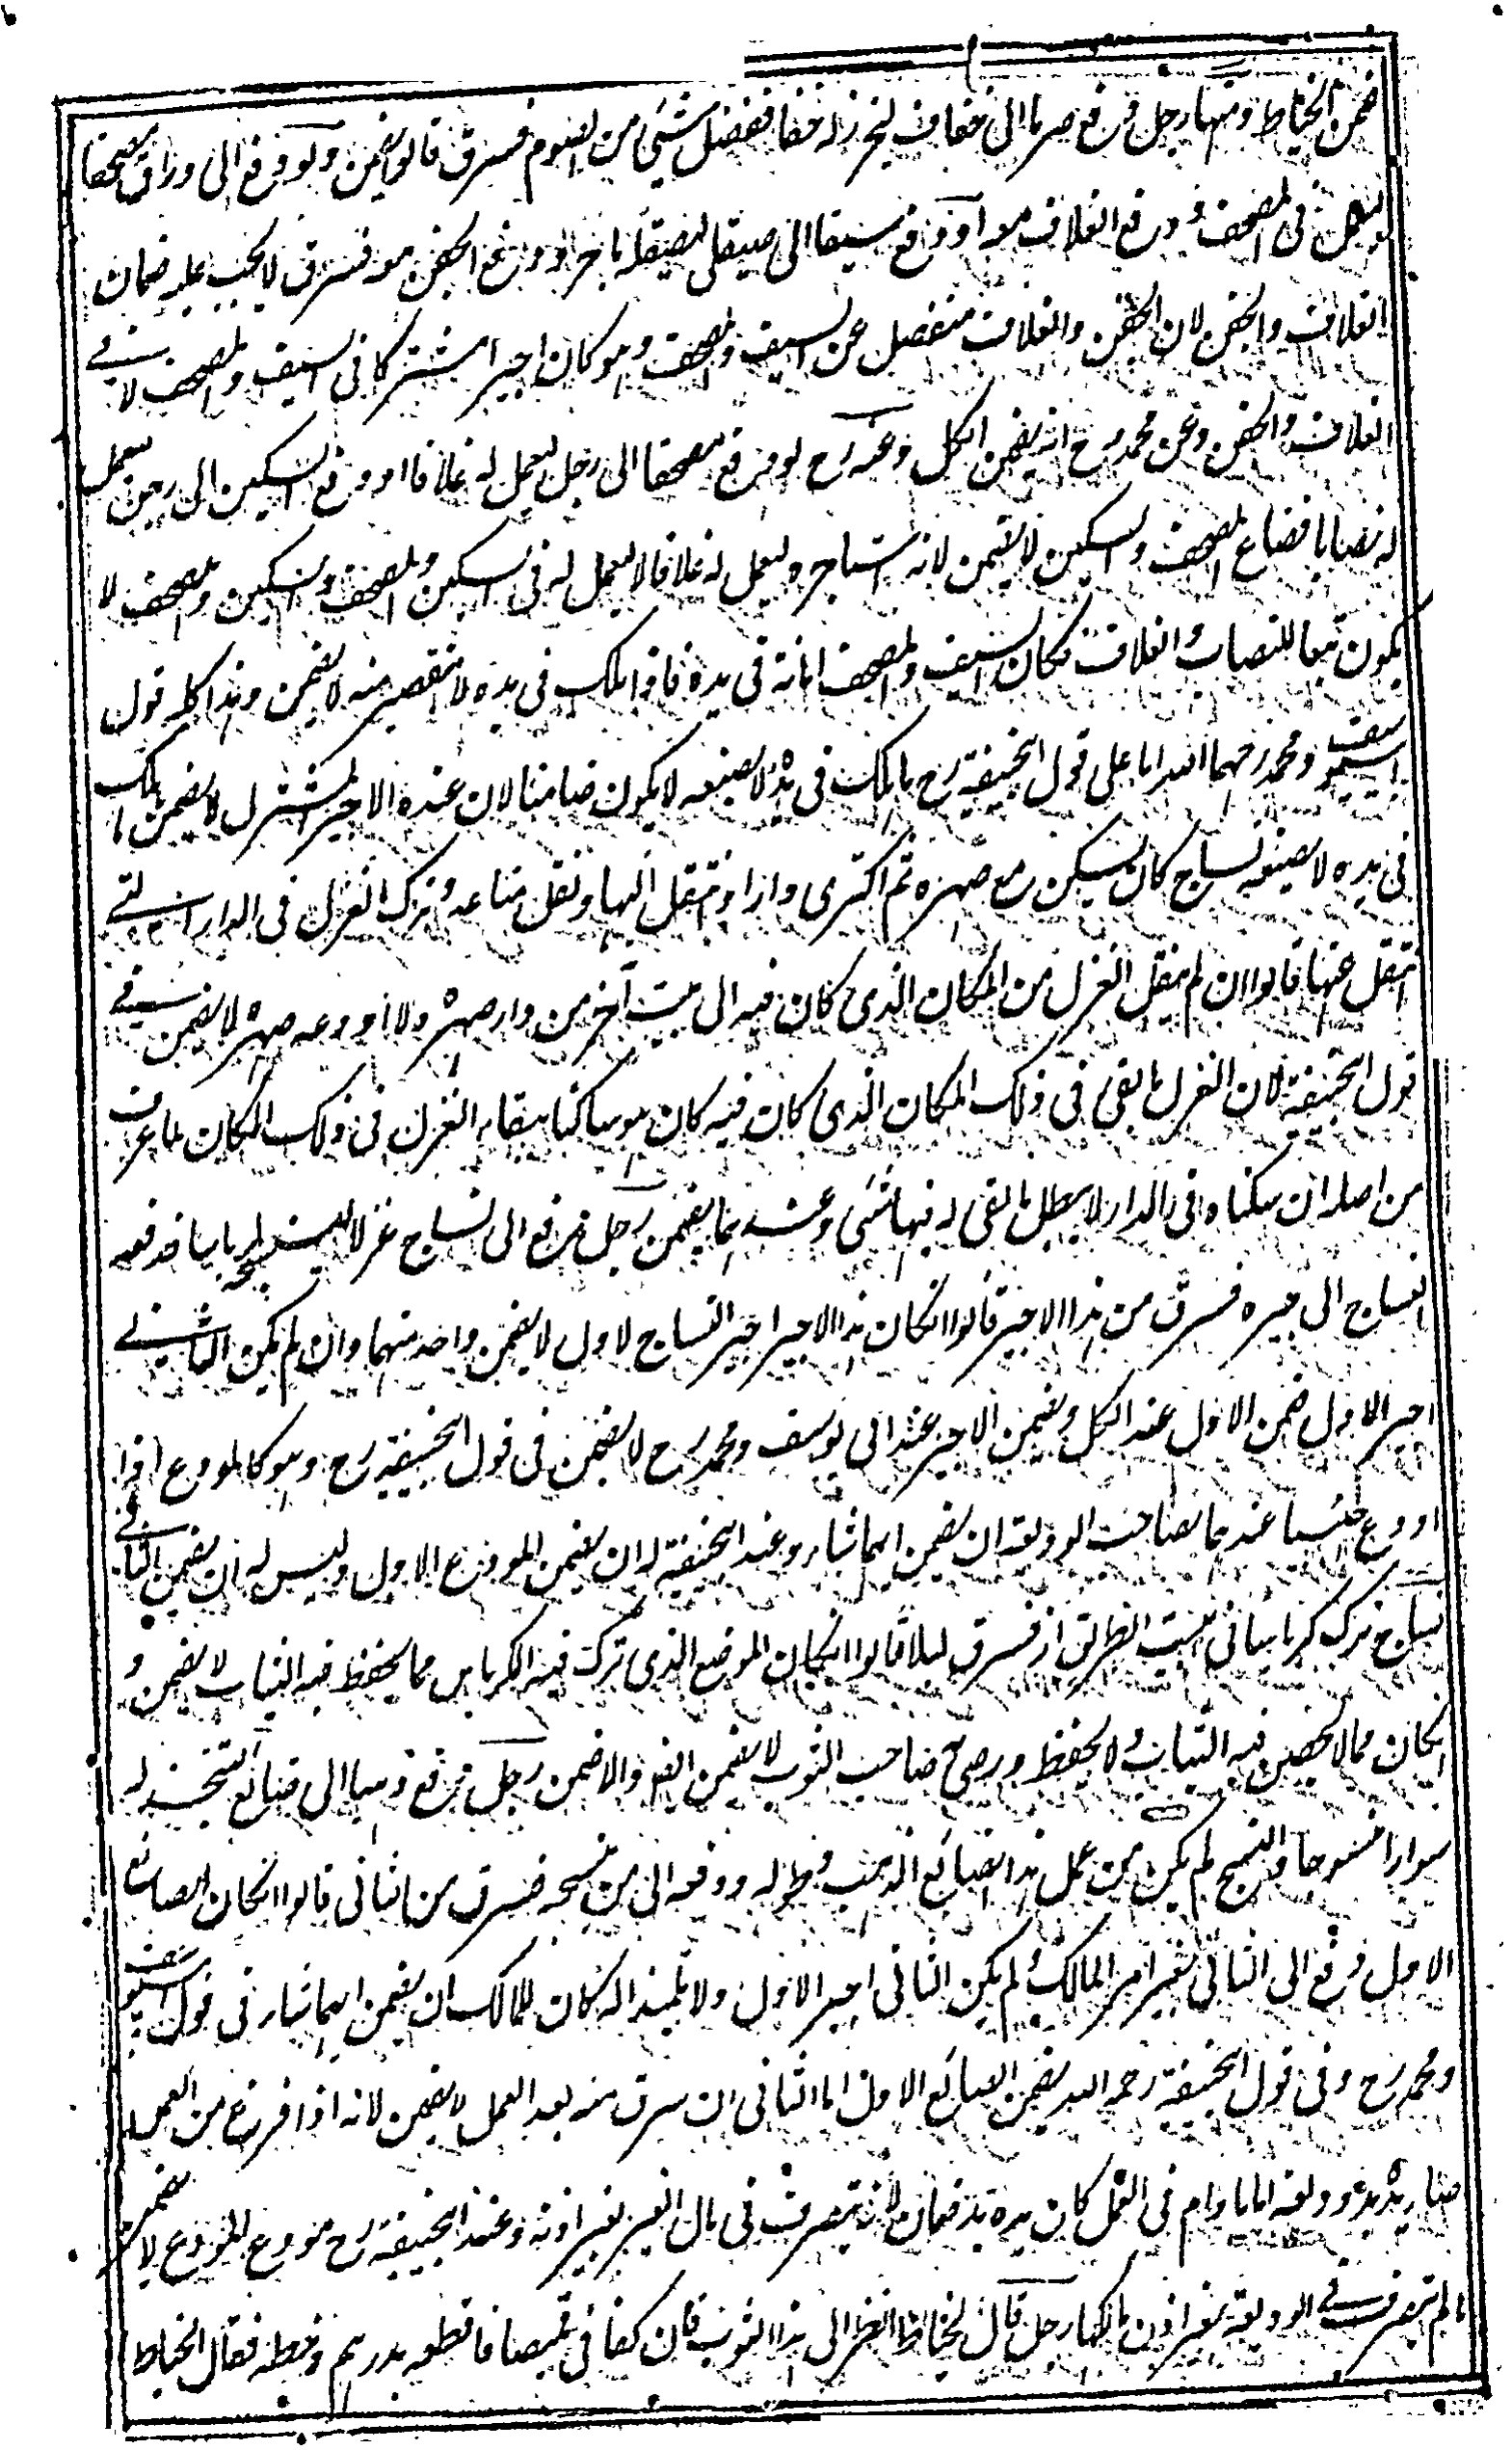 ضمن الخياط ومنها رجل دفع صرما الى خفاف ليخرز له خفا ففضل شيء من الصرم فسرق قالوا يضمن ولو دفع الى وراق مصحفا
ليعمل فى المصحف ودفع الغلاف معه او دفع سيفا الى صيقل ليصيقله باجر او دفع الجفن معه فسرق لا يجب عليه ضمان
الغلاف والجفن لان الجفن والغلاف منفصل عن السيف والمصحف وهو كان اجيرا مشتركا فى السيف والمصحف لا فى
الغلاف والجفن وعن محمد رح انه يضمن الكل وعنه رح لو دفع مصحفا الى رجل ليعمل له غلافا او دفع السكين الى رجل ليعمل
له نصابا فضاع المصحف والسكين لا يضمن لانه استاجره ليعمل له غلافا لا ليعمل له فى السكين والمصحف والسكين والمصحف لا
يكون تبعا للنصاب والغلاف فكان السيف والمصحف امانة فى يده فاذا هلك فى يده لا بتقصير منه لا يضمن وهذا كله قول
ابى يوسف ومحمد رحمهما الله اما على قول ابيحنيفة رح ما هلك فى يده لا بصنعه لا يكون ضامنا لان عنده الاجير المشترك لا يضمن ما هلك
فى يده لا بصنعه نساج كان يسكن مع صهره ثم اكترى دارا وانتقل اليها ونقل متاعه وترك الغزل فى الدار التى
انتقل عنها قالوا ان لم ينقل الغزل من المكان الذى كان فيه الى بيت آخر من دار صهره ولا اودعه صهره لا يضمن فى
قول ابيحنيفة لان الغزل ما بقى فى ذلك المكان الذى كان فيه كان هو ساكنا ببقاء الغزل فى ذلك المكان لما عرف
من اصله ان سكناه فى الدار لا يبطل ما بقى له فيها شئ وعندهما يضمن رجل دفع الى نساج غزلا لينسجه كرباسا فدفعه
النساج الى غيره فسرق من هذا الاجير قالوا انكان هذا الاجير اجير النساج الاول لا يضمن واحد منهما وان لم يكن الثانى
اجير الاول ضمن الاول عند الكل ويضمن الاجير عند ابى يوسف ومحمد رح لا يضمن فى قول ابيحنيفة رح وهو كالمودع اذا
اودع عندهما لصاحب الوديعة ان يضمن ايهما شاء وعند ابيحنيفة له ان يضمن المودع الاول وليس له ان يضمن الثانى
نساج ترك كرباسا فى بيت الطراز فسرق ليلا قالوا انكان الموضع الذى ترك فيه الكرباس مما يحفظ فيه الثياب لا يضمن و
انكان مما لا يحصن فيه الثياب ولا يحفظ ورضى صاحب الثوب لا يضمن ايضا والا ضمن رجل دفع ذهبا الى صائغ ليتخذ له
سوارا منسوجا والنسج لم يكن من عمل هذا الصائغ فاصلح الذهب وطوله ودفعه الى من ينسجه فسرق من الثانى قالوا انكان الصائغ
الاول دفع الى الثانى بغير امر المالك ولم يكن الثانى اجير الاول ولا تلميذا له كان للمالك ان يضمن ايهما شاء فى قول ابى يوسف
ومحمد رح وفى قول ابيحنيفة رحمه الله يضمن الصائغ الاول اما الثانى ان سرق منه بعد العمل لا يضمن لانه اذا فرغ من العمل
صار يده يد وديعة اما ما دام فى العمل كان يده يد ضمان لانه يتصرف فى مال الغير بغير اذنه وعند ابيحنيفة رح مودع المودع لا يضمن
ما لم يتصرف فى الوديعة بغير اذن مالكها رجل قال لخياط انظر الى هذا الثوب فان كفانى قميصا فاقطعه بدرهم وخطه فقال الخياط